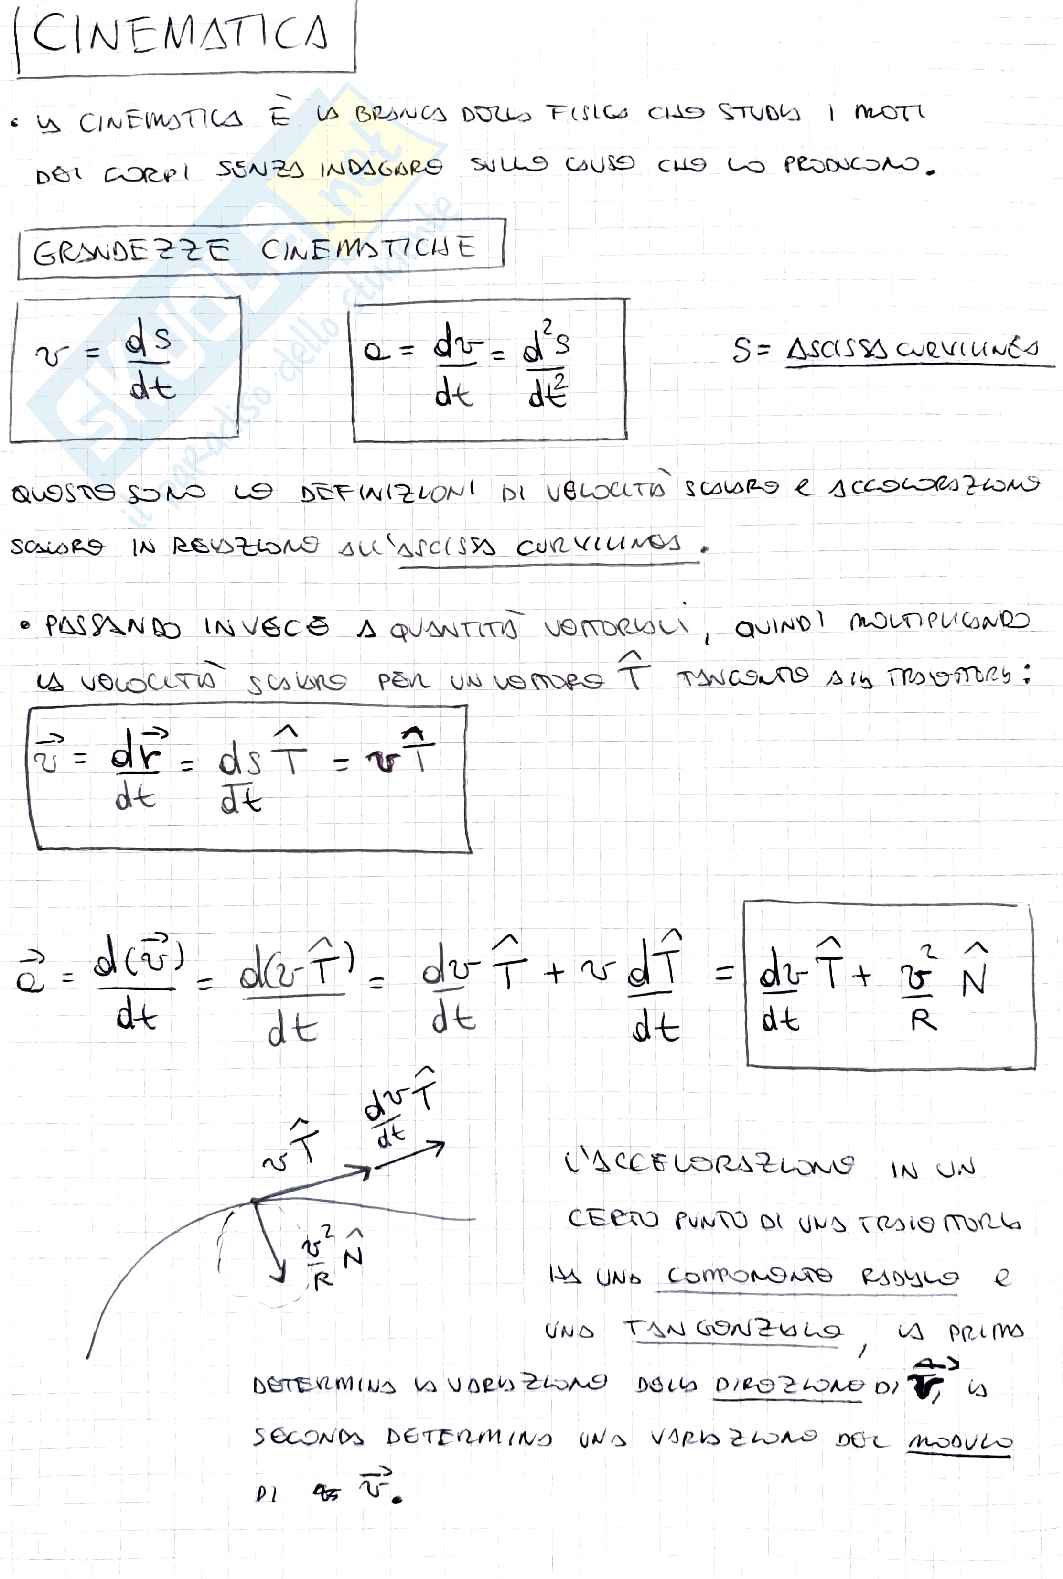 CINEMATICA
• LA CINEMATICA È LA BRANCA DELLA FISICA CHE STUDIA I MOTI
DEI CORPI SENZA INDAGARE SULLE CAUSE CHE LO PRODUCONO.
GRANDEZZE CINEMATICHE
v = ds/dt
a = dv/dt = d²s/dt²
S = ASCISSA CURVILINEA
QUESTE SONO LE DEFINIZIONI DI VELOCITÀ SCALARE E ACCELERAZIONE
SCALARE IN RELAZIONE ALL'ASCISSA CURVILINEA.
• PASSANDO INVECE A QUANTITÀ VETTORIALI, QUINDI MOLTIPLICANDO
LA VELOCITÀ SCALARE PER UN VETTORE T̂ TANGENTE ALLA TRAIETTORIA:
v⃗ = dr⃗/dt = ds/dt T̂ = vT̂
a⃗ = d(v⃗)/dt = d(vT̂)/dt = dv/dt T̂ + v dT̂/dt = dv/dt T̂ + v²/R N̂
dv/dt T̂
vT̂
v²/R N̂
L'ACCELERAZIONE IN UN
CERTO PUNTO DI UNA TRAIETTORIA
HA UNA COMPONENTE RADIALE E
UNA TANGENZIALE, LA PRIMA
DETERMINA LA VARIAZIONE DELLA DIREZIONE DI v⃗, LA
SECONDA DETERMINA UNA VARIAZIONE DEL MODULO
DI v⃗.
SKUOLA.net
il paradiso dello studente